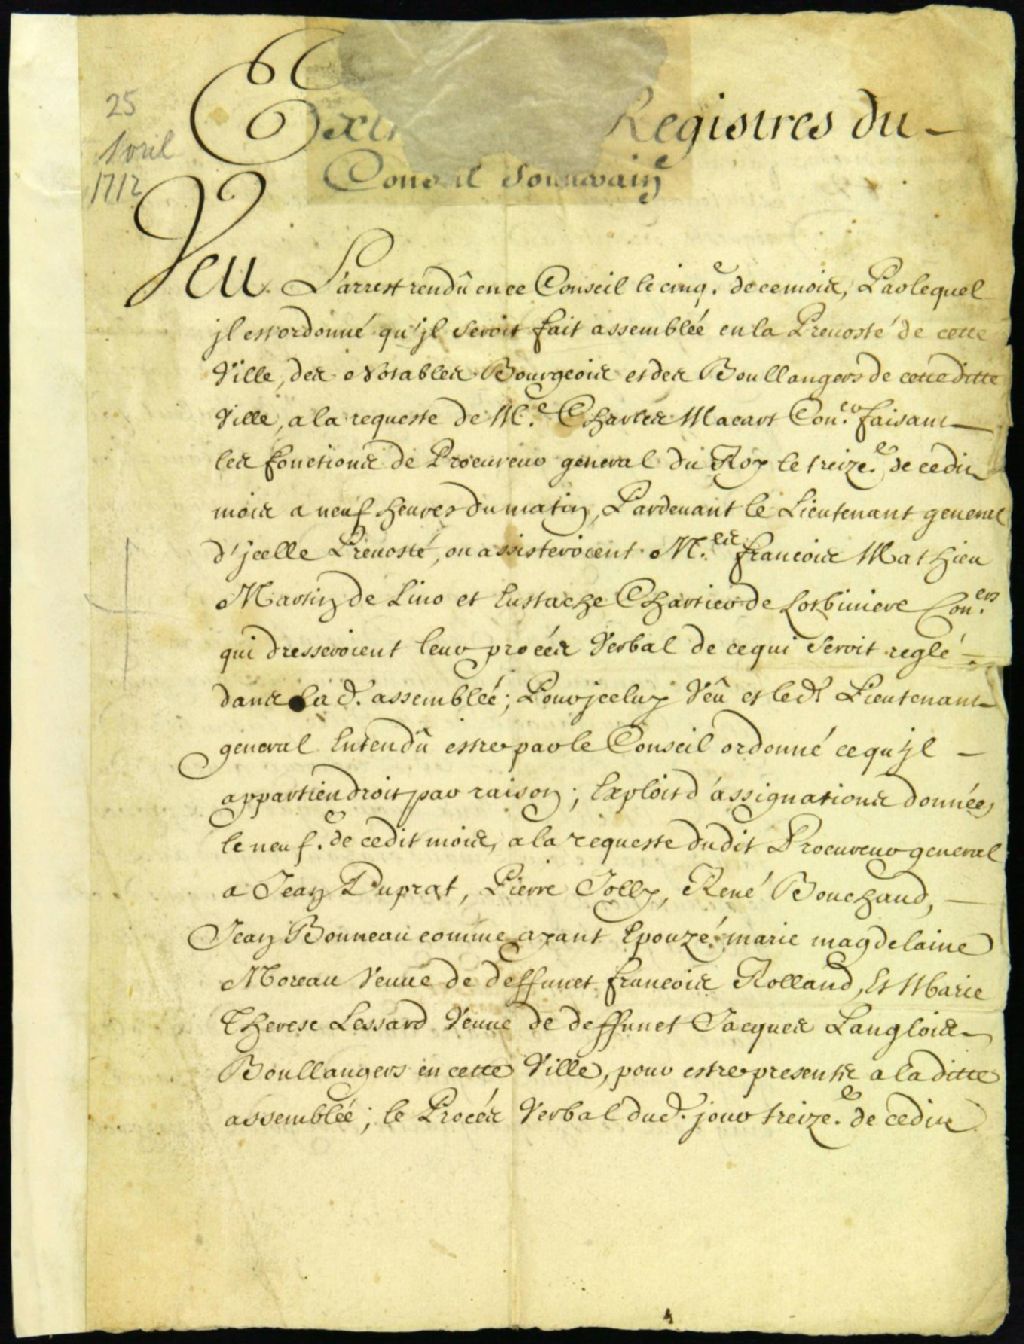 25
Avril
1712
Extr Registres du
Conseil Souuerain
Veu L'arrest rendû en ce Conseil le cinq.e de ce mois, Par lequel
jl est ordonné qu'jl seroit fait assemblée en la Preuosté de cette
Ville, des Notables Bourgeois et des Boullangers de cette ditte
Ville, a la requeste de M.e Charles Macart Con.er faisant
les fonctions de Procureur general du Roy le treize.e de cedit
mois a neuf heures du matin, Pardeuant le Lieutenant general
d'jcelle Preuosté, ou assisteroient M.es francois Mathieu
Martin de Lino et Eustache Chartier de Lotbiniere Con.ers
qui dresseroient leur procés Verbal de ce qui seroit reglé
dans la d. assemblée; Pour jceluy Veû et led. Lieutenant
general Entendû estre par le Conseil ordonné ce qu'jl
appartiendroit par raison; Exploit d'assignations données
le neuf.e de cedit mois, a la requeste dudit Procureur general
a Jean Duprat, Pierre Jolly, René Bouchaud,
Jean Bonneau comme ayant Epouzé marie magdelaine
Moreau Veuue de deffunct francois Rolland, Et Marie
Therese Lessard Veuue de deffunct Jacques Langlois
Boullangers en cette Ville, pour estre presents a la ditte
assemblée; le Procés Verbal dud. jour treize.e de cedit